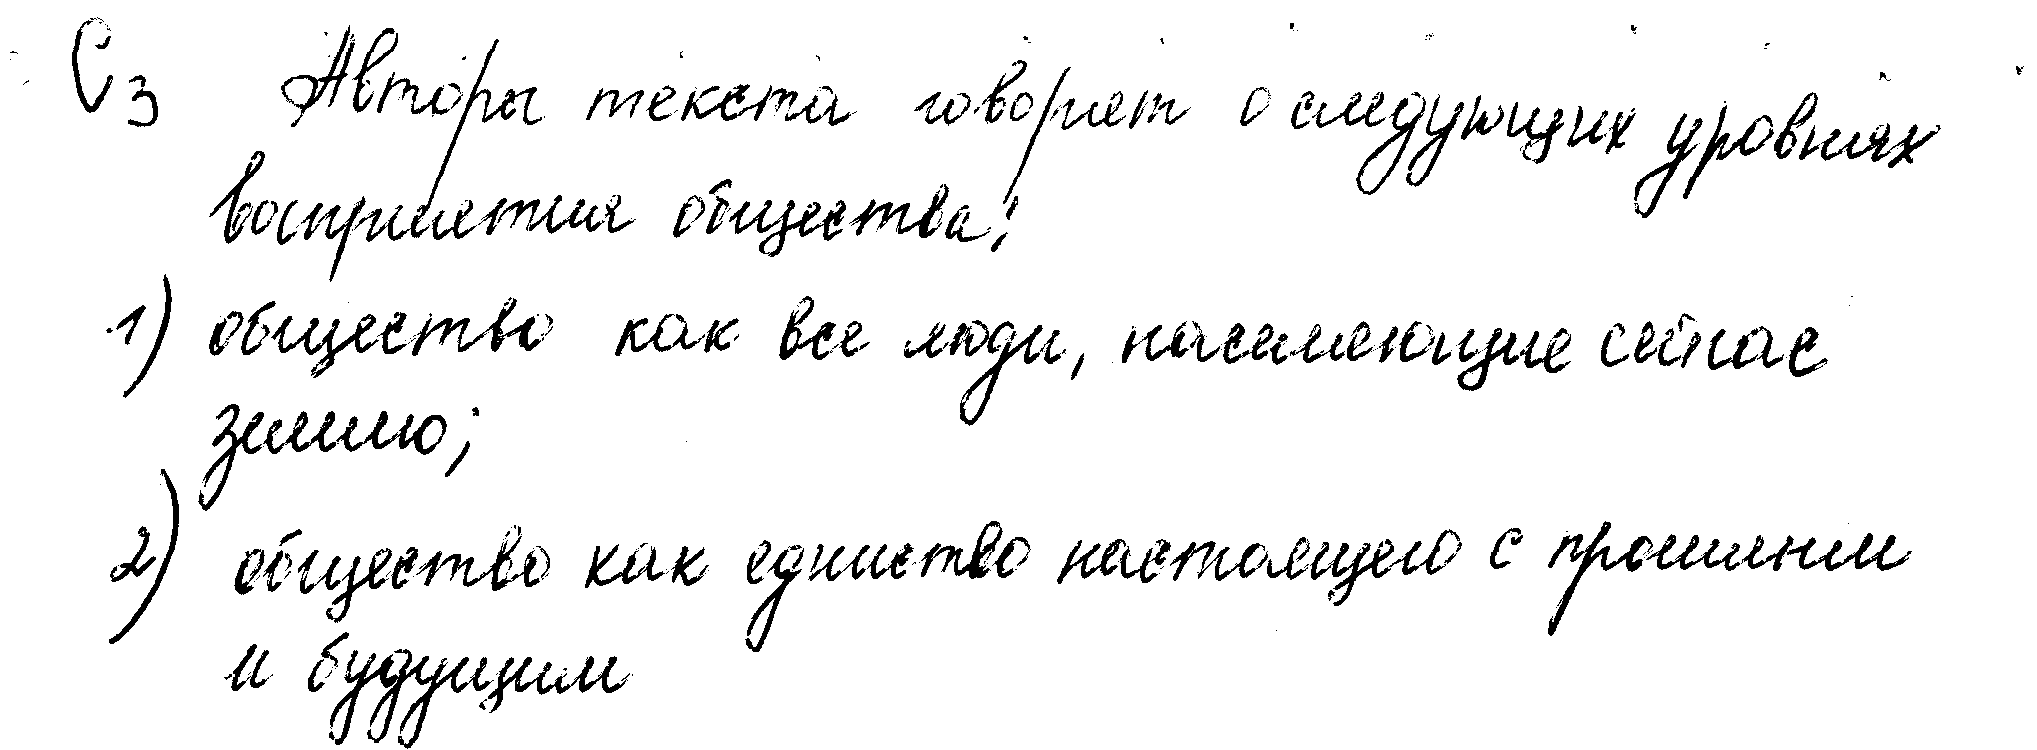 С3 Авторы текста говорят о следующих уровнях
восприятия общества:
1) общество как все люди, населяющие сейчас
землю;
2) общество как единство настоящего с прошлым
и будущим